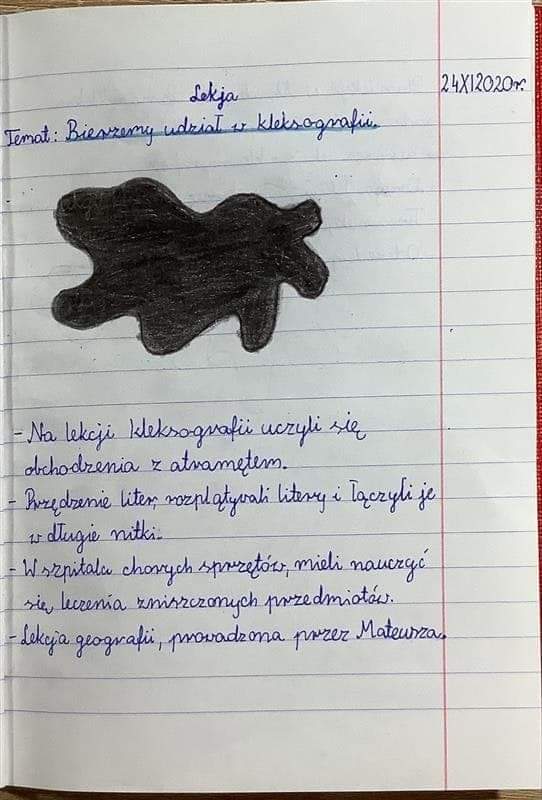 Lekja
24XI2020r.
Temat: Bierzemy udział w kleksografii.
- Na lekcji kleksografii uczyli się
obchodzenia z atramętem.
- Przędzenie liter, rozplątywali litery i łączyli je
w długie nitki.
- W szpitalu chorych sprzętów, mieli nauczyć
się leczenia zniszczonych przedmiotów.
- Lekcja geografii, prowadzona przez Mateusza.